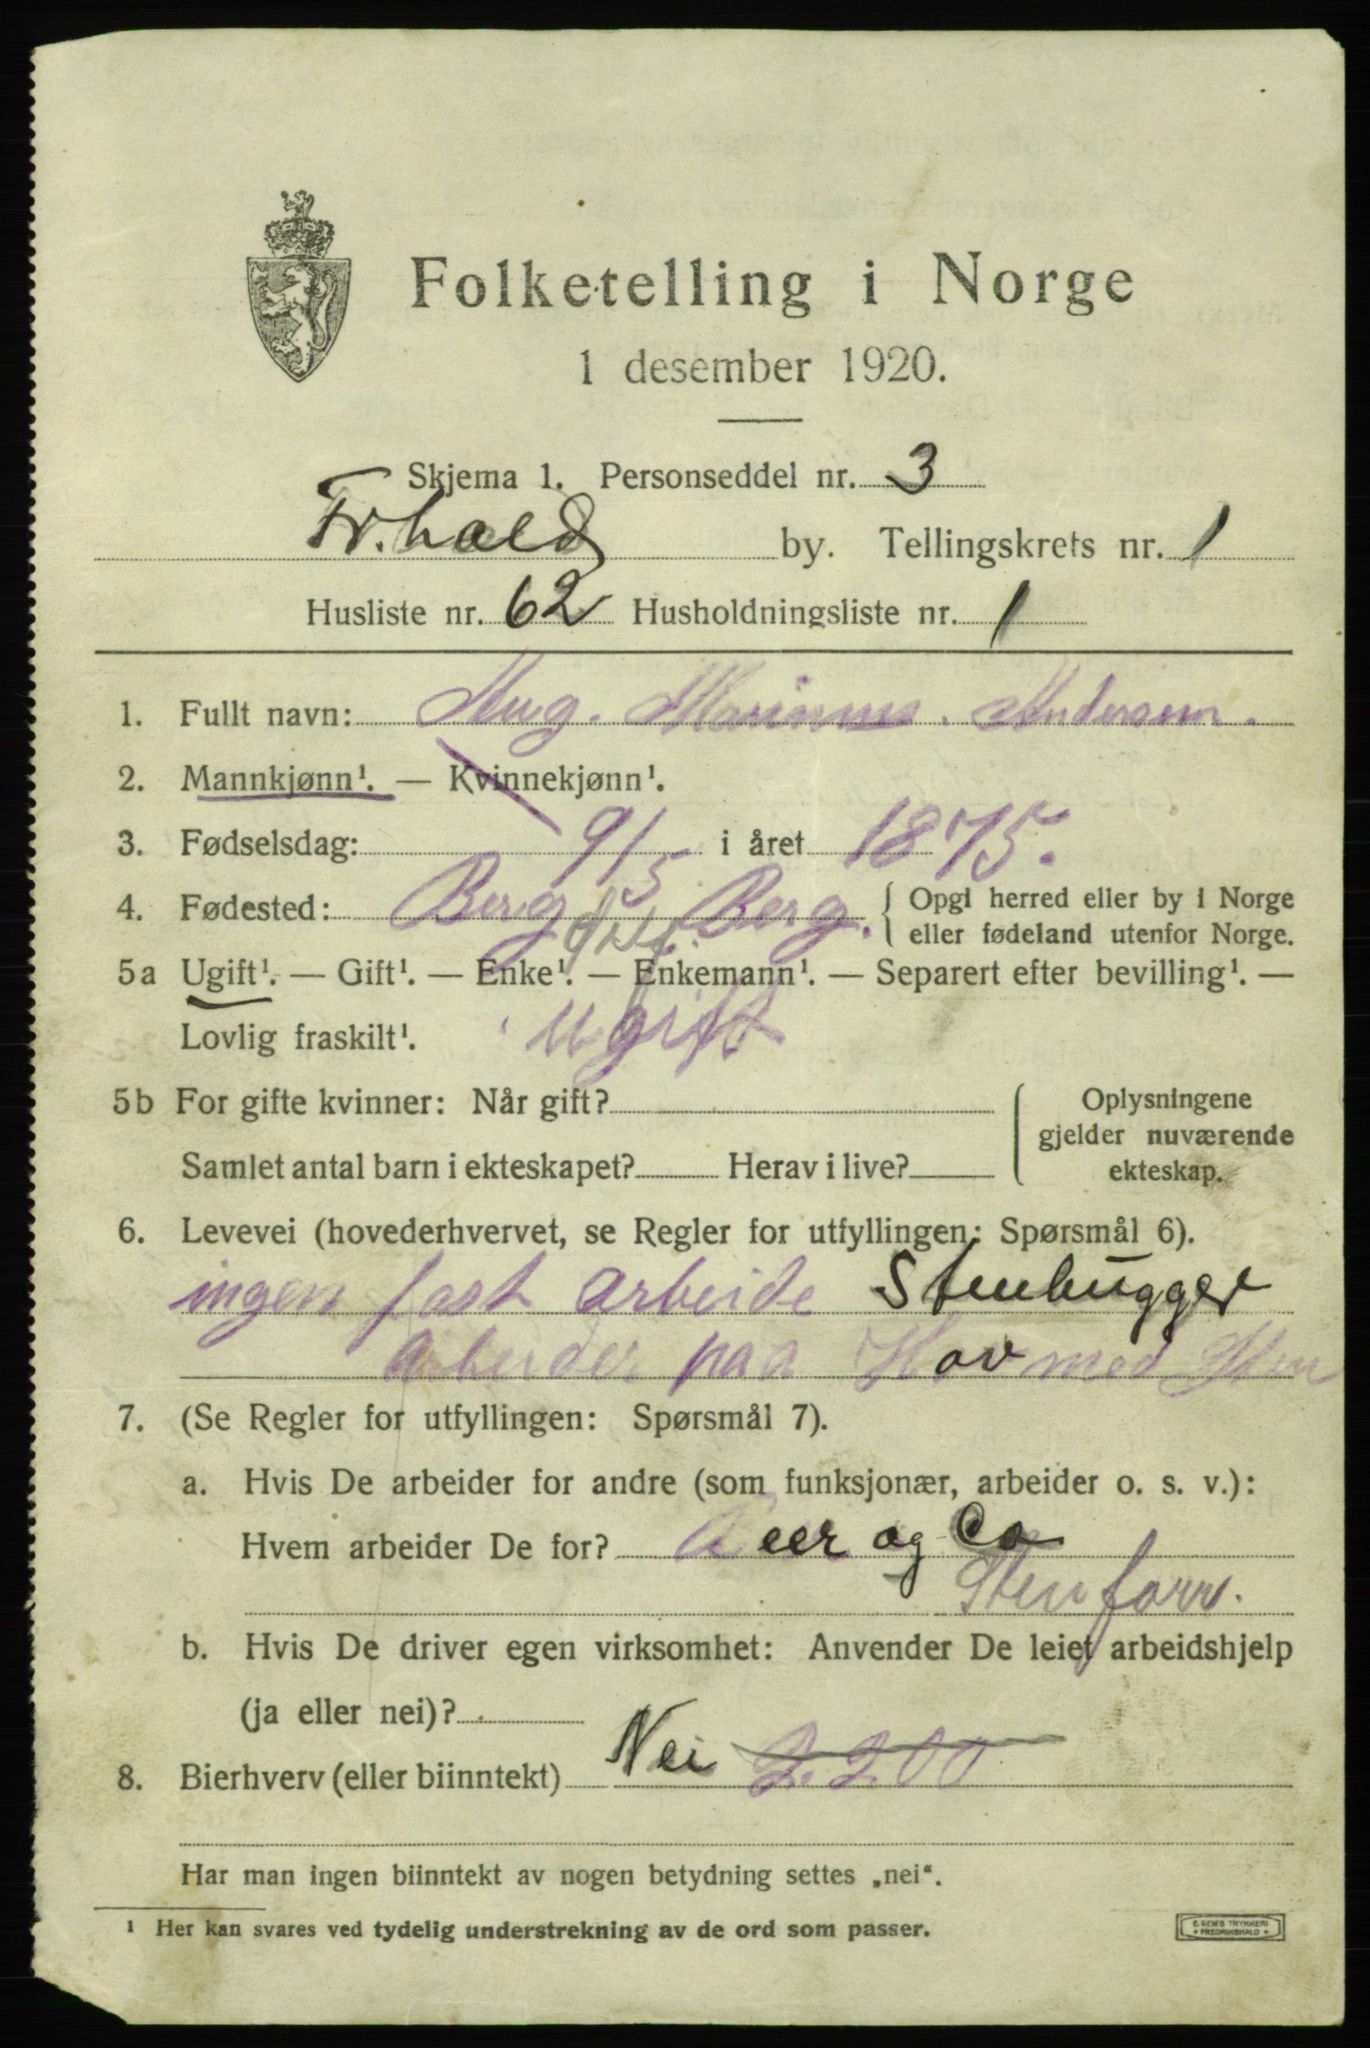 Folketelling i Norge
1 desember 1920.
Skjema 1. Personseddel nr. 3
Fr.hald by. Tellingskrets nr. 1
Husliste nr. 62 Husholdningsliste nr. 1
1. Fullt navn: Aug. Marinus. Andersen.
2. Mannkjønn¹. — Kvinnekjønn¹.
3. Fødselsdag: 9/5 i året 1875.
4. Fødested: Berg Berg. { Opgi herred eller by i Norge
eller fødeland utenfor Norge.
5a Ugift¹. — Gift¹. — Enke¹. — Enkemann¹. — Separert efter bevilling¹. —
Lovlig fraskilt¹. Ugift
5b For gifte kvinner: Når gift? Oplysningene
gjelder nuværende
Samlet antal barn i ekteskapet? Herav i live? ekteskap.
6. Levevei (hovederhvervet, se Regler for utfyllingen: Spørsmål 6).
ingen fast arbeide Stenhugger
arbeider paa Hov med Sten
7. (Se Regler for utfyllingen: Spørsmål 7).
a. Hvis De arbeider for andre (som funksjonær, arbeider o. s. v.):
Hvem arbeider De for? og Co
Stenforr.
b. Hvis De driver egen virksomhet: Anvender De leiet arbeidshjelp
(ja eller nei)?
8. Bierhverv (eller biinntekt) Nei 2.200
Har man ingen biinntekt av nogen betydning settes „nei“.
¹ Her kan svares ved tydelig understrekning av de ord som passer.
E. SEM'S TRYKKERI
• FREDRIKSHALD •